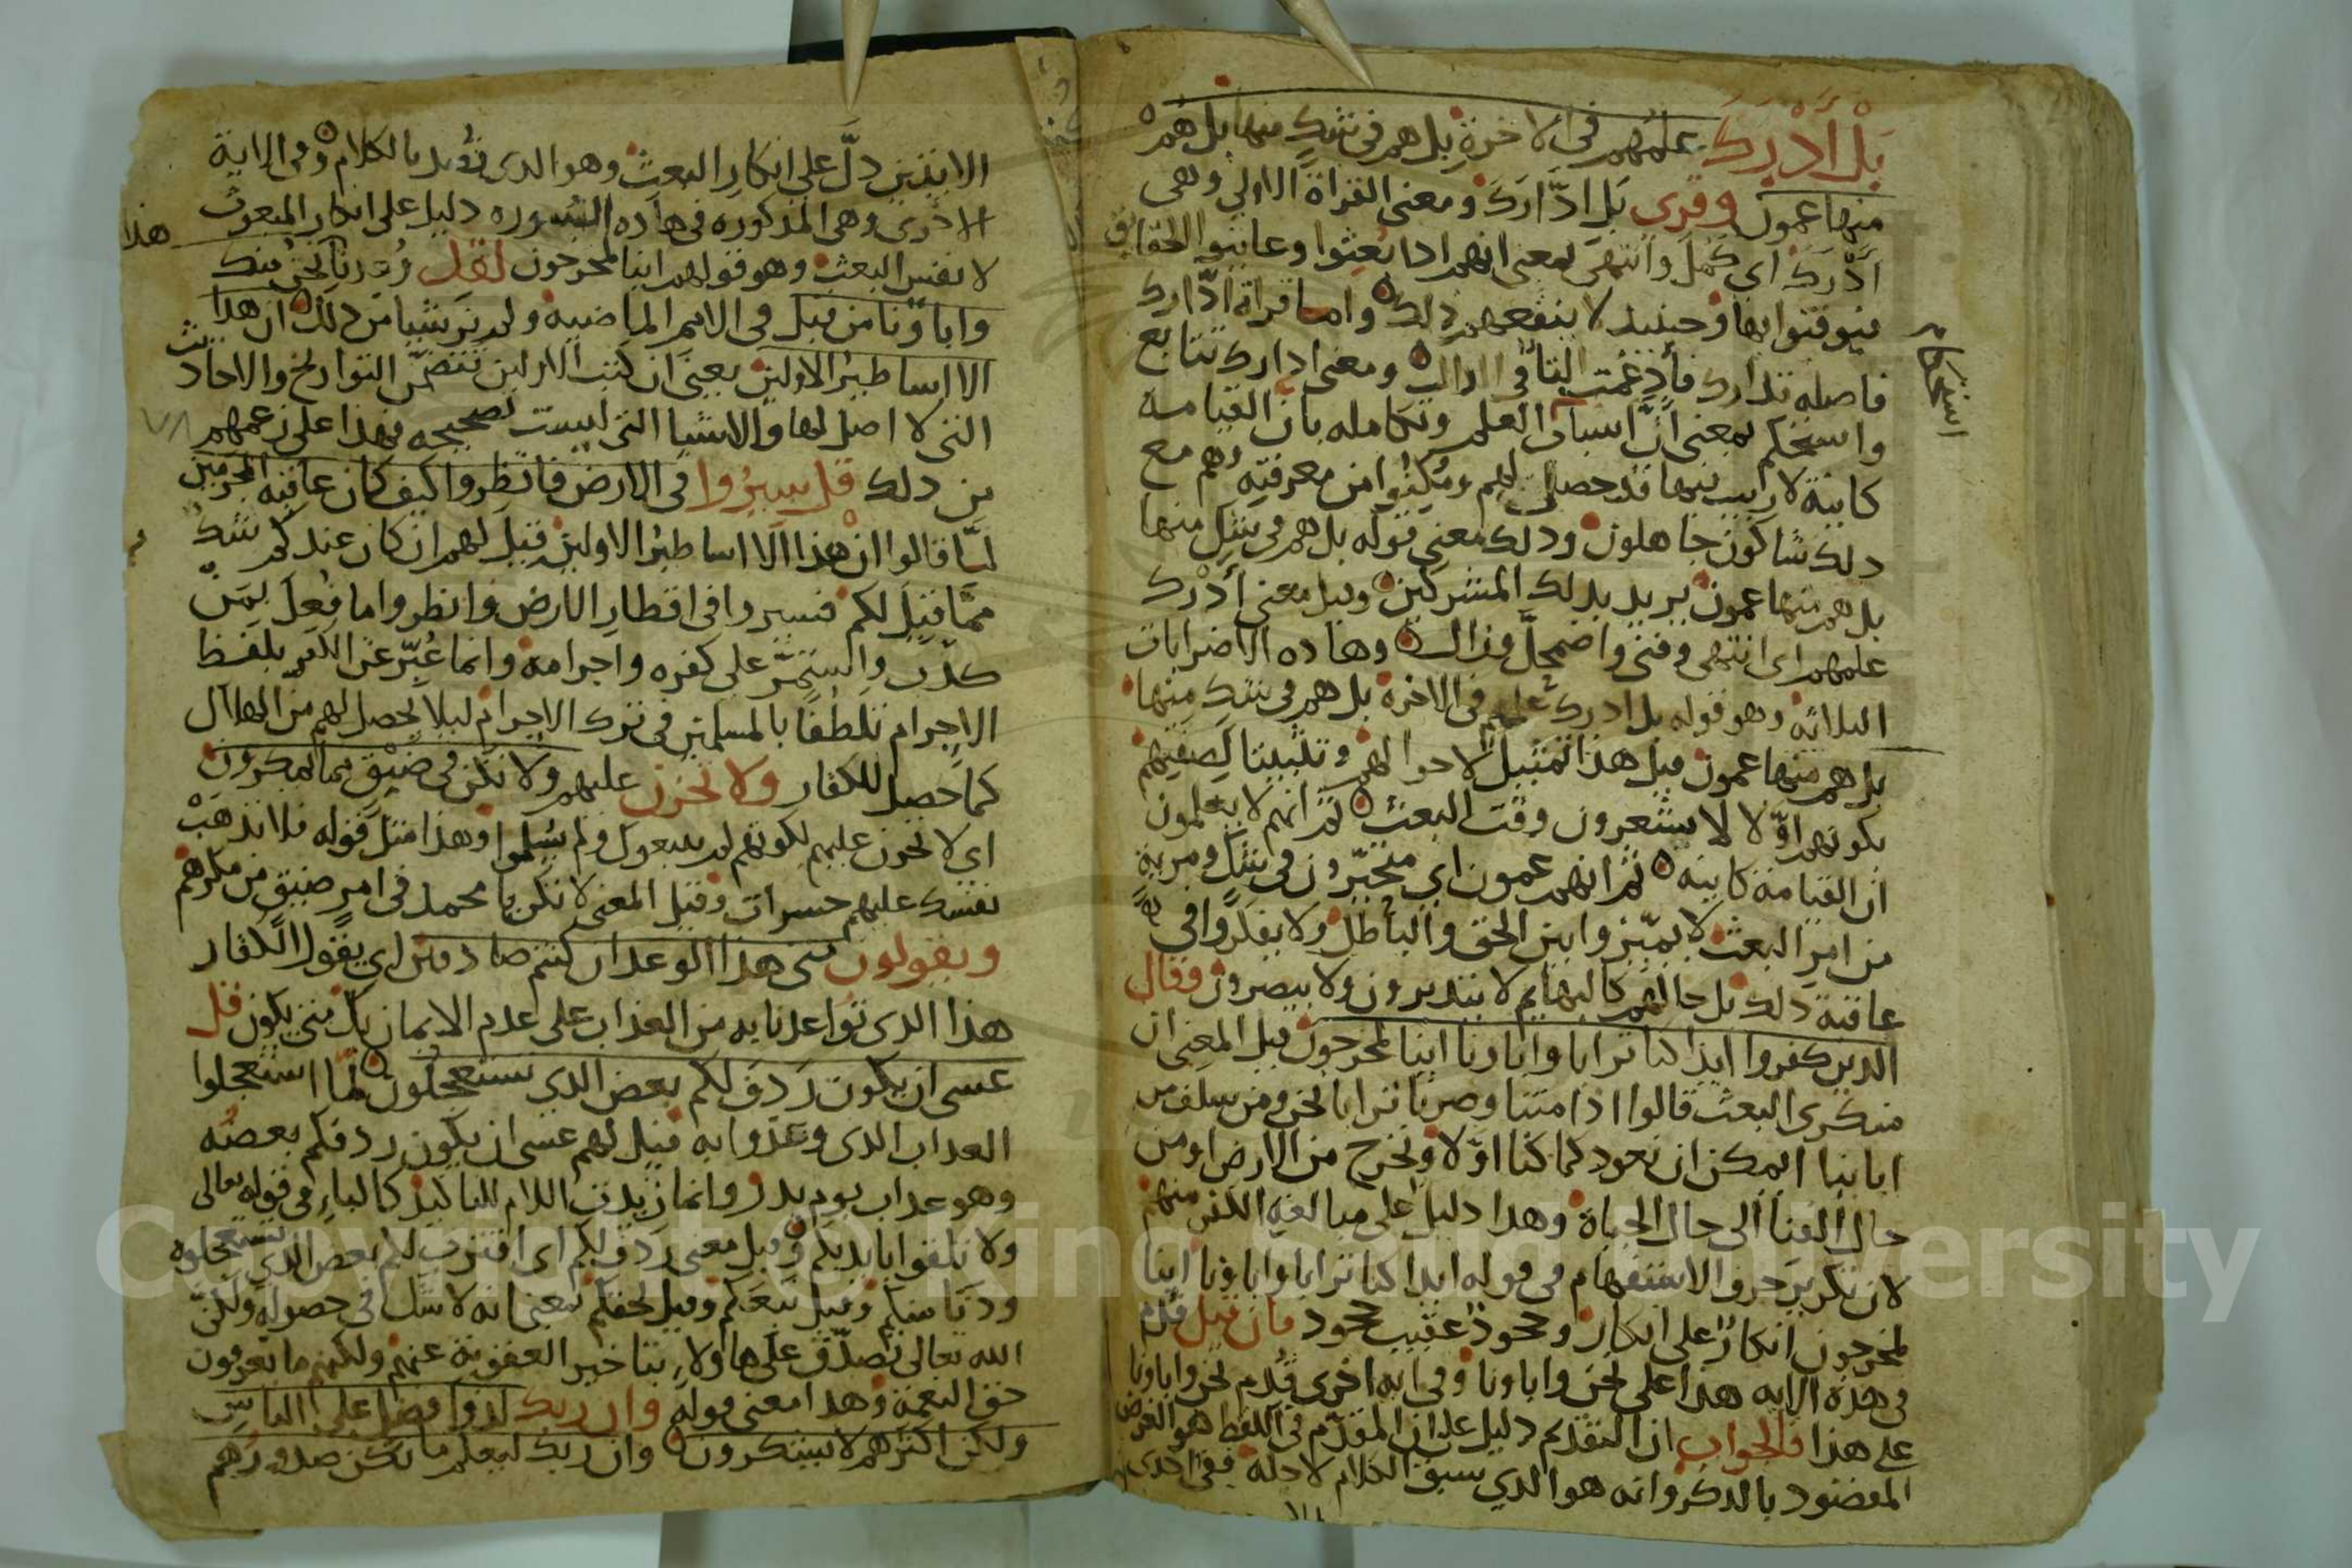 بَلْ أَدْرَكَ علمهم فى الاخرة بل هم فى شك منها بل هم
منها عمون وقرى بَل ادّارَكَ ومعنى القراة الاولى وهى
أَدْرَكَ اى كمل وانتهَى بمعنى انهم اذا بُعِثوا وعاينوا الحقايق
فيوقنوا بها وحينيد لا ينفعهم دلك واما قراة ادّارك
فاصله تدارك فأُدغمت التا فى الدال ومعنى ادارك تتابع
واستحكم بمعنى انَّ اسباب العلم وتكامله بان القيامة
كاينة لا ريب فيها قد حصلت لهم ومُكِنُوا من معرفتِهِ وهم مع
دلك شاكون جاهلون ودلك معنى قوله بل هم فى شك منها
بل هم منها عمون يريد بدلك المشركين وقيل معنى أدْرَك
علمهم اى انتهى وفنى واضمحلَّ وزال وهاده الاضرابات
الثلاثه وهو قوله بل ادرك علمهم فى الاخرة بل هم فى شك منها
بل هم منها عمون قيل هذا تمثيل لاحوالهم وتثبيتا لصفتهم
بكونهم اوّلا لا يشعرون وقت البعث ثم انهم لا يعلمون
ان القيامة كاينه ثم انهم عمون اى متحيّرون فى شك ومرية
من امر البعث لا يميّزوا بين الحق والباطل ولا يفكروا فى
عاقبة دلك بل حالهم كالبهايم لا يتدبرون ولا يبصرون وقال
الدين كفروا ايذا كنا ترابا واباونا اينا لمخرجون قيل المعنى ان
منكرى البعث قالوا اذا متنا وصرنا ترابا نحن ومن سلف من
اباينا ايمكن ان نعود كما كنا اوّلا ونخرج من الارض او من
حال الفنا الى حال الحياة وهدا دليل على مبالغة الكفر منهم
لان تكرير حرف الاستفهام فى قوله ايدا كنا ترابا واباؤنا اينا
لمخرجون انكارٌ على انكار وجحودٌ عقيب جحود فان قيل قُدّم
فى هذه الايه هذا على نحن واباونا وفى ايه اخرى قُدّم نحن واباونا
على هذا فالجواب ان التقديم دليل على ان المقدّم فى اللفظ هو الغرض
المقصود بالدكر وانه هو الدي سيق الكلام لاجله ففى احدى
استحكام
الايتين دلَّ على انكار البعث وهو الدى تُؤيد بالكلام وفى الاية
الاخرى وهى المدكوره فى هاده السوره دليل على انكار المبعوث
هذا
لا نفس البعث وهو قولهم اينا لمخرجون لقد وُعدنا نحن
واباؤنا من قبل فى الامم الماضيه ولم نر شيا من دلك ان هذا
الا اساطير الاولين يعنى ان كتب الاولين تتضمّن التواريخ والاحاديث
التى لا اصل لها والاشيا التى ليست بصحيحه فهذا على زعمهم
من دلك قل سيرُوا فى الارض فانظروا كيف كان عاقبه المجرمين
لمّا قالوا ان هذا الا اساطير الاولين قيل لهم ان كان عندكم شك
ممّا قيل لكم فسيروا فى اقطار الارض وانظروا ما فُعل بمن
كذّب واستمرّ على كفره واجرامه وانما عُبّر عن الكفر بلفظ
الاجرام تلطفا بالمسلمين فى ترك الاجرام ليلا يحصل لهم من الهلاك
كما حصل للكفار ولا تحزن عليهم ولا تكن فى ضيْق مما يمكرون
اى لا تحزن عليهم لكونهم لم يتبعوك ولم يسلموا وهذا مثل قوله فلا تذهَبْ
نفسك عليهم حسرات وقيل المعنى لا تكن يا محمد فى امرٍ ضيق من مكرهم
ويقولون متى هذا الوعد ان كنتم صادقين اى يقول الكفار
هذا الدى تواعدنا به من العذاب على عدم الايمان بك متى يكون قل
عسى ان يكون رَدِفَ لكم بعض الدي تستعجلون لمّا استعجلوا
العداب الدى وعدوا به قيل لهم عسى ان يكون ردفكم بعضه
وهو عداب يوم بدر وانما زيدت اللام للتاكيد كالباءِ فى قوله تعالى
ولا تلقوا بايديكم وقيل معنى ردف لكم اى اقترب لكم بعض الدي تستعجلوه
ودنا منكم وقيل تبعكم وقيل لحقكم بمعنى انه لا شك فى حصوله ولكنّ
الله تعالى تصدّق على هاولاءِ بتاخير العقوبة عنهم ولكنهم ما يعرفون
حق النعمة وهدا معنى قوله وان ربك لذوا فضل على الناس
ولكن اكثرهم لا يشكرون وان ربك ليعلم ما تكن صدورهم
Copyright © King Saud University